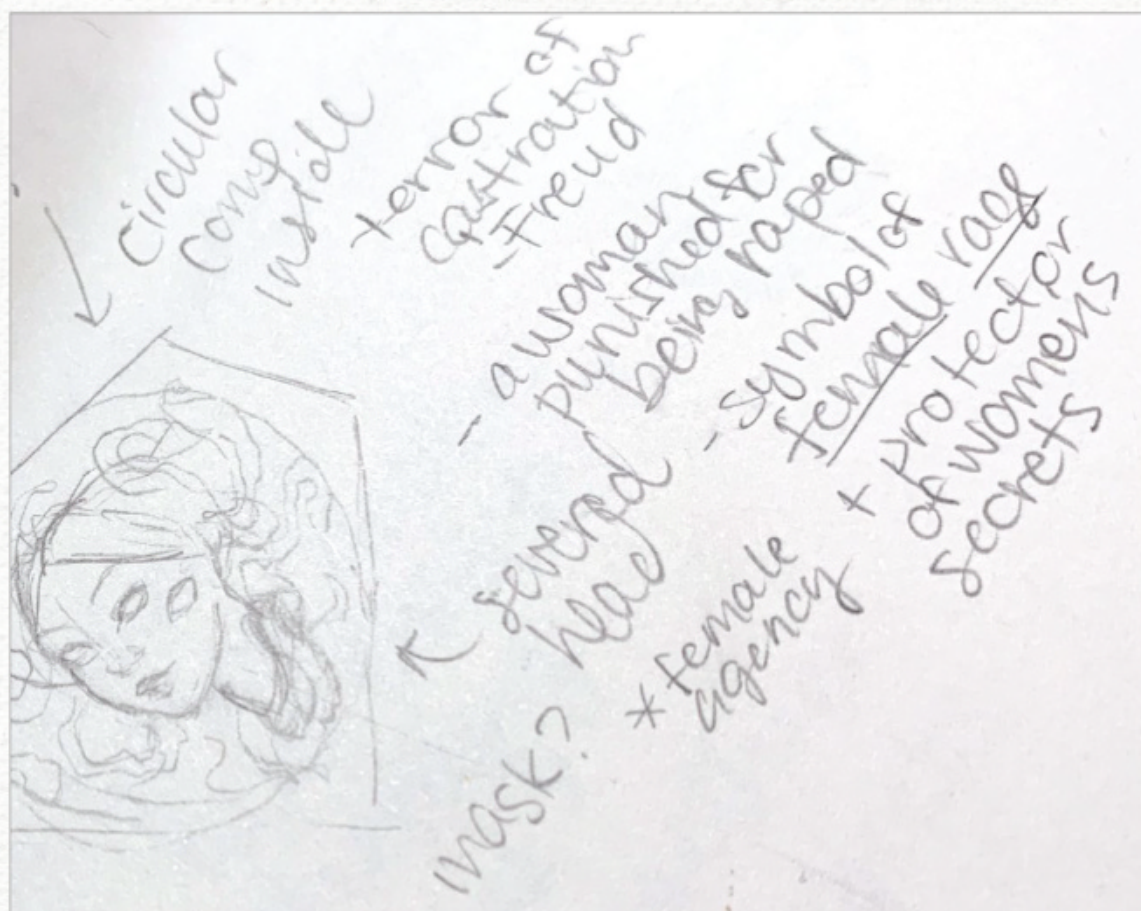 circular
comp
inside
terror of
castration
-Freud
- a woman
punished for
being raped
- symbol of
female rage
+ protector
of womens
secrets
severed
head
* female
agency
mask?